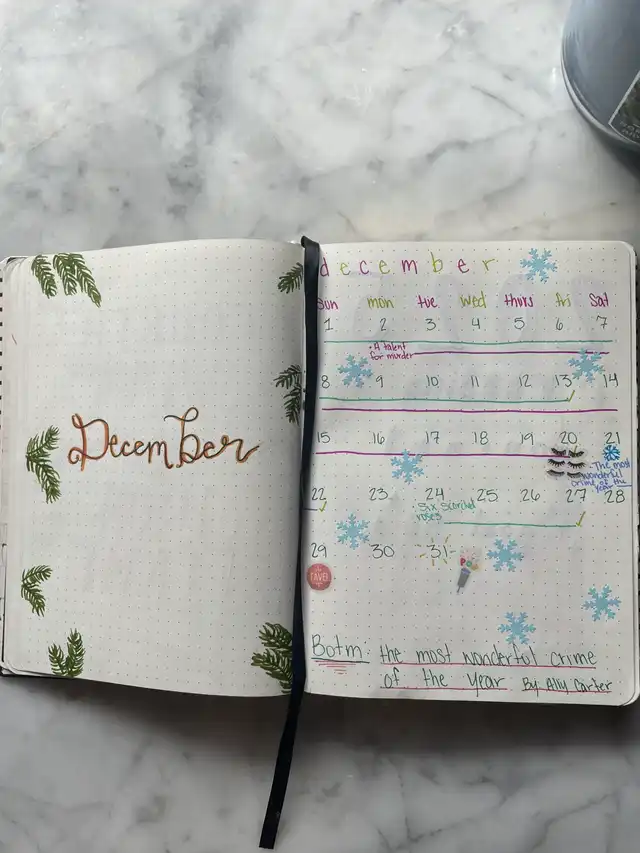 December
december
sun mon tue wed thurs fri sat
1 2 3 4 5 6 7
· A talent
for murder
8 9 10 11 12 13 14
15 16 17 18 19 20 21
The most
wonderful
crime of the
year
22 23 24 25 26 27 28
· Six Scorched
roses
29 30 31
POP
FAVE!
Botm: the most wonderful crime
of the year By Ally Carter